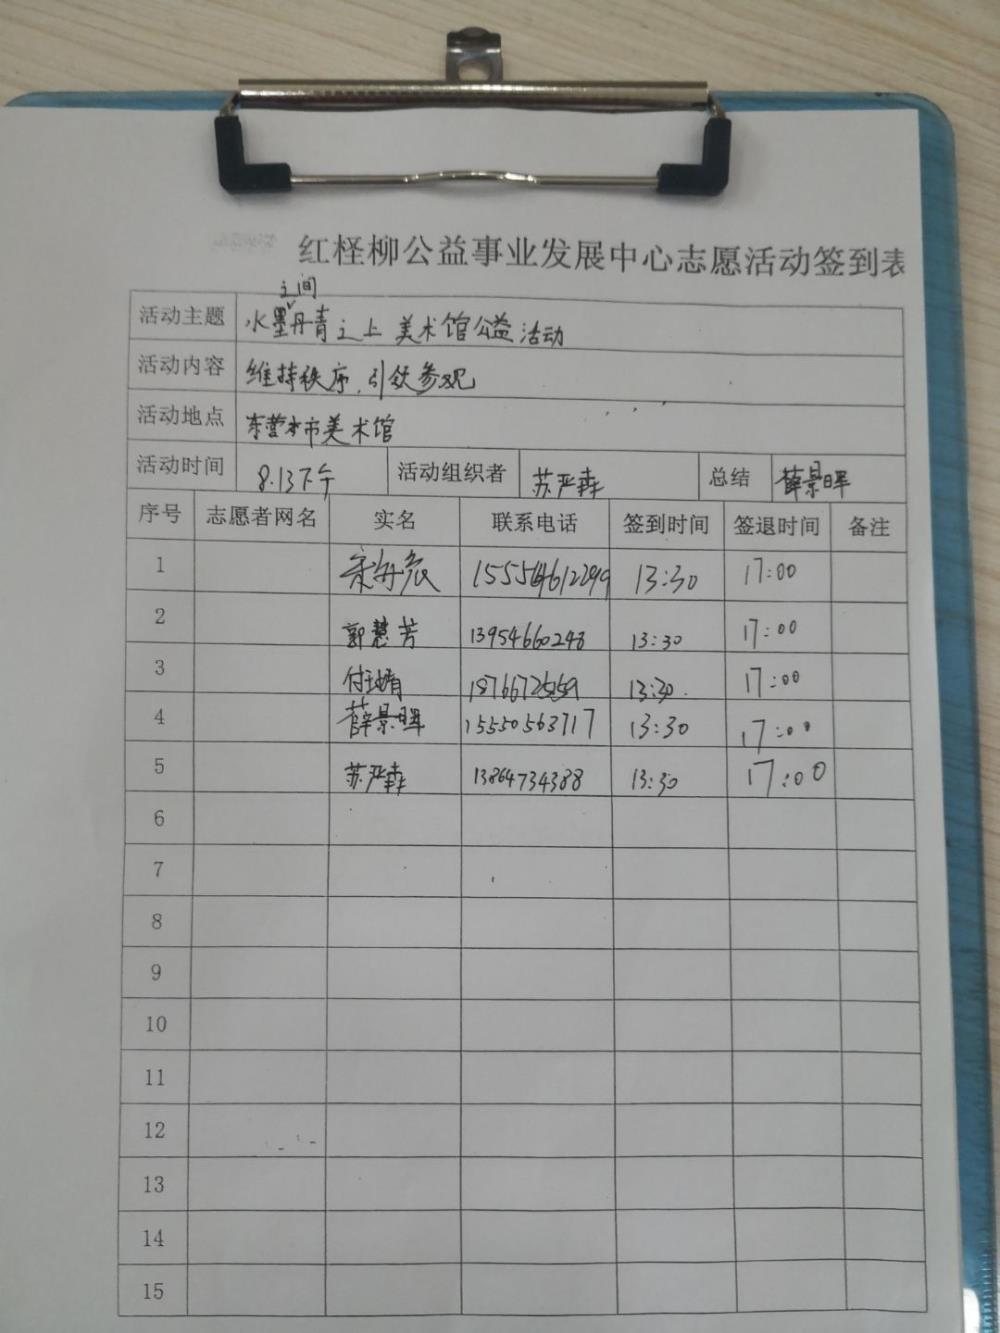 红柽柳公益事业发展中心志愿活动签到表
之间
活动主题 水墨丹青之上 美术馆公益活动
活动内容 维持秩序,引领参观
活动地点 东营市美术馆
活动时间 8.13下午 活动组织者 苏严犇 总结 薛景晖
序号 志愿者网名 实名 联系电话 签到时间 签退时间 备注
1 13:30 17:00
2 郭慧芳 13954660248 13:30 17:00
3 付 13:30 17:00
4 薛景晖 15550563717 13:30 17:00
5 苏严犇 13864734388 13:30 17:00
6
7
8
9
10
11
12
13
14
15